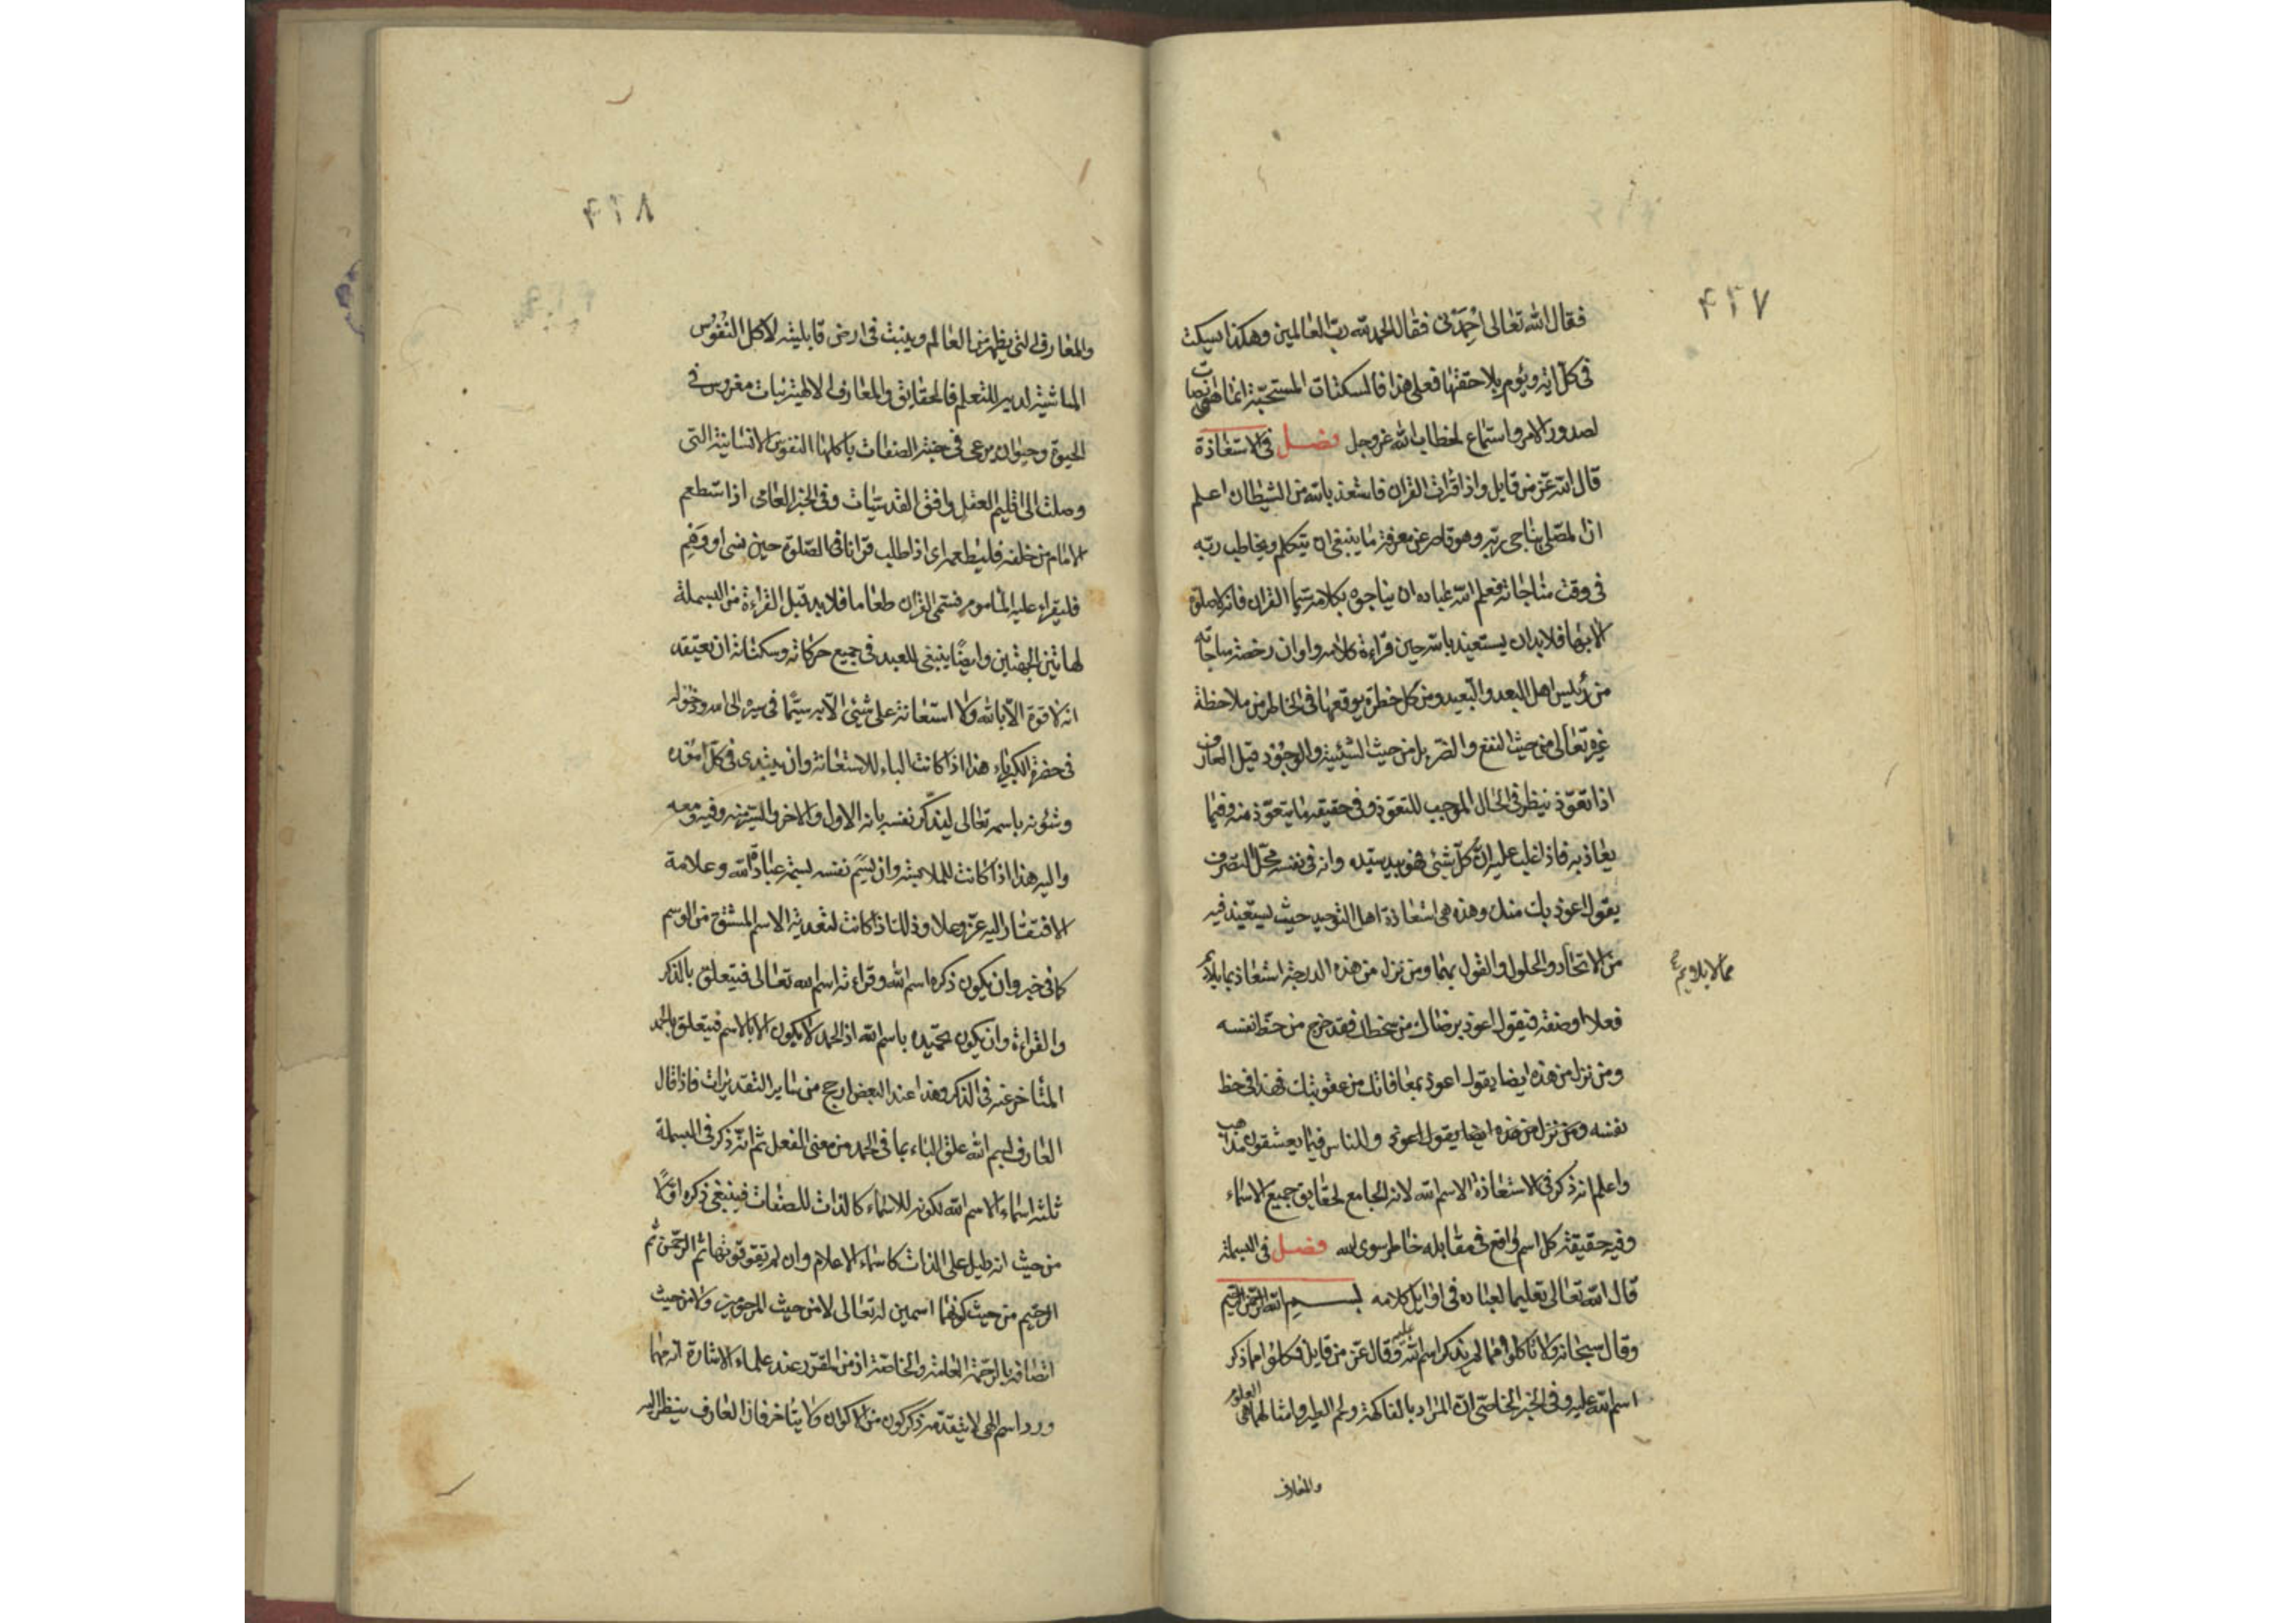 ۴۲۷
فقال الله تعالى احمدنى فقال الحمد لله رب العالمين وهكذا يسكت
فى كل اية ويؤم بلاحقتها فعلى هذا فالسكتات المستحبة انما هى انصات
لصدور الامر واستماع لخطاب الله عز وجل فصل فى الاستعاذة
قال الله عز من قايل واذا قرات القران فاستعذ بالله من الشيطان اعلم
ان المصلى يناجى ربه وهو قاصر عن معرفة ما ينبغى ان يتكلم ويخاطب ربه
فى وقت مناجاته فعلم الله عباده ان يناجوه بكلامه سيما القران فانه لا صلوة
الا بها فلا بد ان يستعيذ بالله حين قراءة كلامه واوان رخصة مناجاته
من رئيس اهل البعد والتبعيد ومن كل خطرة يوقعها فى الخاطر من ملاحظة
غيره تعالى من حيث النفع والضر بل من حيث الشيئية والوجود قيل العارف
اذا تعوذ ينظر فى الحال الموجب للتعوذ وفى حقيقة ما يتعوذ منه وفيما
يعاذ به فاذا غلب عليه ان كل شئى فهو بيد سيده وانه فى نفسه محل التصرف
يقول اعوذ بك منك وهذه هى استعاذة اهل التوحيد حيث يستعيذ فيه
من الاتحاد والحلول والقول بهما ومن نزل من هذه الدرجة استعاذ بما يلايم
مما لا يلايم
فعلا او صفة فيقول اعوذ برضاك من سخطك فقد خرج من حظ نفسه
ومن نزل من هذه ايضا يقول اعوذ بمعافاتك من عقوبتك فهذا فى حظ
نفسه ومن نزل من هذه ايضا يقول اعوذ وللناس فيما يعشقون مذاهب
واعلم انه ذكر فى الاستعاذة الاسم الله لانه الجامع لحقايق جميع الاسماء
وفيه حقيقة كل اسم واقع فى مقابله خاطر سوى الله فصل فى البسملة
قال الله تعالى تعليما لعباده فى اوايل كلامه بسم الله الرحمن الرحيم
وقال سبحانه ولا تاكلوا مما لم يذكر اسم الله عليه وقال عز من قايل فكلوا مما ذكر
اسم الله عليه وفى الخبر الخاصى ان المراد بالفاكهة ولحم الطير وامثالهما هى العلوم
والمعارف
۴۲۸
والمعارف التى يظهر من العالم وينبت فى ارض قابليته لاكل النفوس
الماشية اليه للتعلم فالحقايق والمعارف الالهية نبات مغروس فى
الحيوة وحيوان يرعى فى جنة الصفات ياكلها النفوس الانسانية التى
وصلت الى اقليم العقل وافق القدسيات وفى الخبر العامى اذا استطعم
الامام من خلفه فليطعمه اى اذا طلب قرانا فى الصلوة حين نسى او وهم
فليقراء عليه الماموم فسمى القران طعاما فلا بد قبل القراءة من البسملة
لهاتين الجهتين وايضا ينبغى للعبد فى جميع حركاته وسكناته ان يعتقد
انه لا قوة الا بالله ولا استعانة على شئى الا به سيما فى سيره الى الله ودخوله
فى حضرة الكبرياء هذا اذا كانت الباء للاستعانة وان يبتدى فى كل اموره
وشئونه باسمه تعالى ليذكر نفسه بانه الاول والاخر والسير منه وفيه ومعه
واليه هذا اذا كانت للملابسة وان يسم نفسه بسمة عبادة الله وعلامة
الافتقار اليه عز وعلا وذلك اذا كانت لتعدية الاسم المشتق من الوسم
كما فى خبر وان يكون ذكره اسم الله وقراءته اسم الله تعالى فيتعلق بالذكر
والقراءة وان يكون تحميده باسم الله اذ الحمد لا يكون الا بالاسم فيتعلق بالحمد
المتاخر عنه فى الذكر وهذا عند البعض ارجح من ساير التقديرات فاذا قال
العارف بسم الله علق الباء بما فى الحمد من معنى الفعل ثم انه ذكر فى البسملة
ثلثة اسماء الاسم الله لكونه للاسماء كالذات للصفات فينبغى ذكره اولا
من حيث انه دليل على الذات كاسماء الاعلام وان لم يقو قوتها ثم الرحمن ثم
الرحيم من حيث كونهما اسمين له تعالى لا من حيث المرحومين ولا من حيث
اتصافه بالرحمة العامة والخاصة اذ من المقرر عند علماء الاشارة انه مهما
ورد اسم الهى لا يتقدمه ذكر كون من الاكوان ولا يتاخر فان العارف ينظر اليه